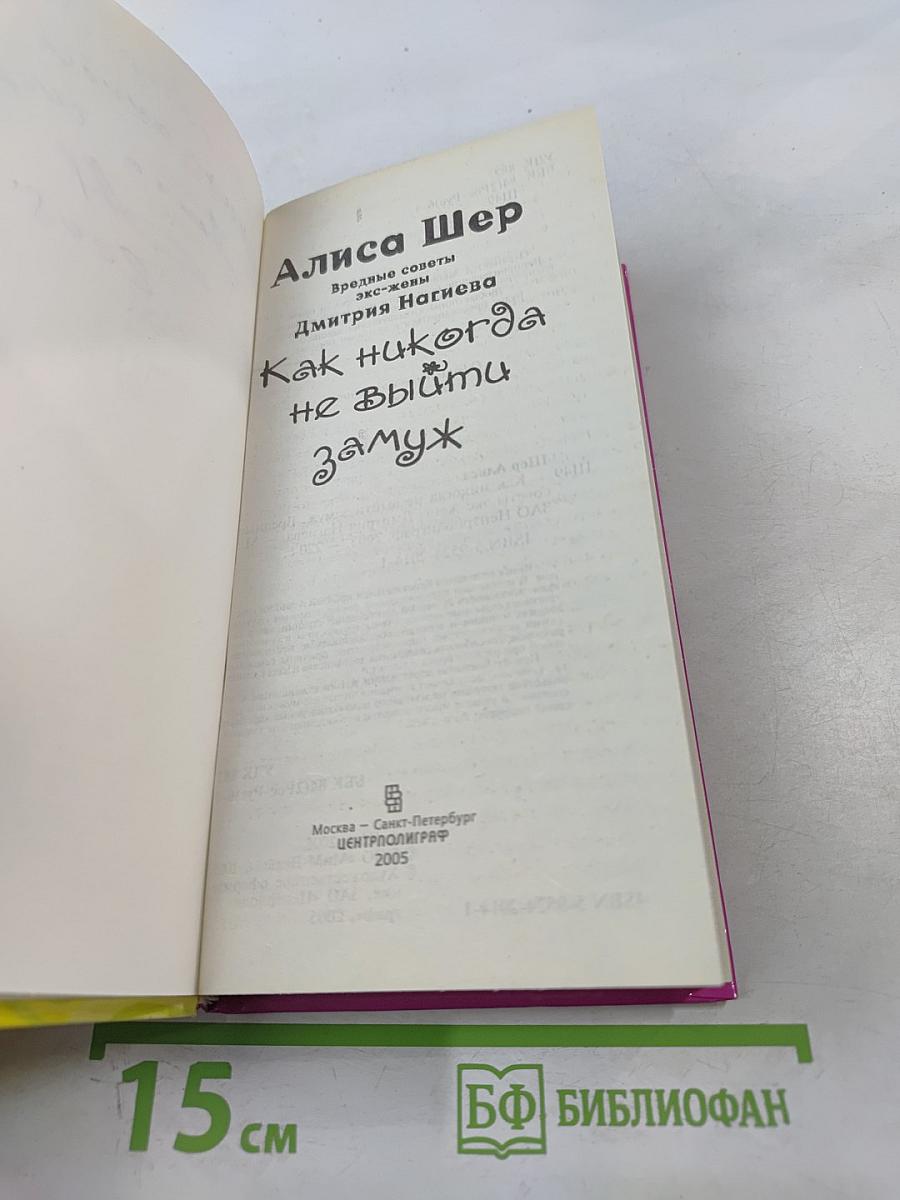 Алиса Шер
Вредные советы
экс-жены
Дмитрия Нагиева
Как никогда
не выйти
замуж
Москва – Санкт-Петербург
ЦЕНТРПОЛИГРАФ
2005
15 см
БФ БИБЛИОФАН